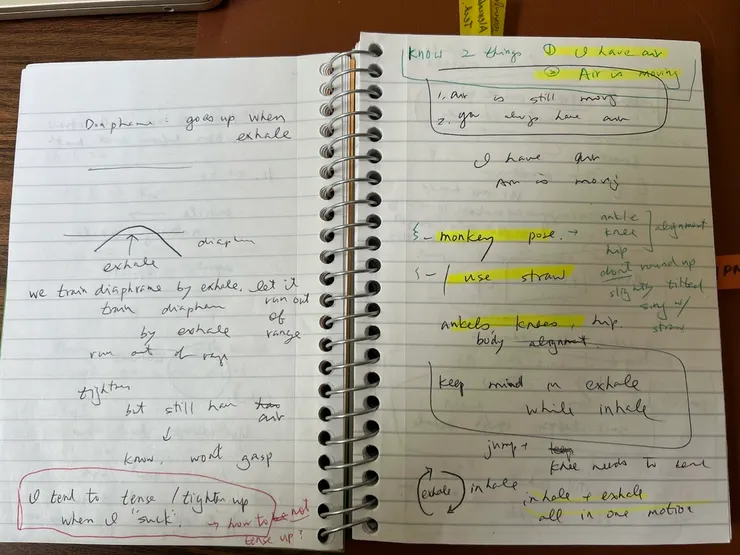 Diaphrame - goes up when
exhale
diaphm
exhale
we train diaphrame by exhale, let it
run out
of
range
train diaphem
by exhale
run out of rage
tighten
but still have
air
↓
know, wont gasp
I tend to tense / tighten up
when I "suck".
→ how to not
tense up?
Know 2 things ① I have air
② Air is moving
1. air is still movg
2. you always have air
I have air
Air is movg
- monkey pose. →
ankle
knee
hip
alignment
- / use straw
dont round up
slightly tilted
sing w/
straw
ankels knees, hip.
body alignment.
Keep mind in exhale
while inhale
jump +
knee needs to bend
exhale
inhale
inhale + exhale
all in one motion